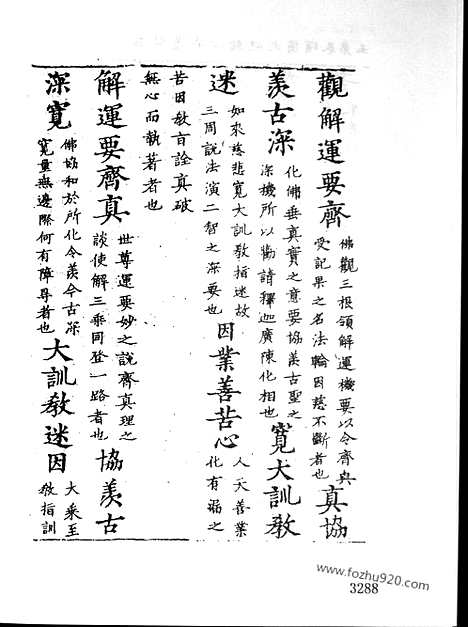 觀解運要齊佛觀三根領解運機要以令齊與受記果之名法輪因慈不斷者也真協
羨古深化佛垂真實之意要協羨古聖之深機所以勸請釋迦廣陳化相也寬大訓教
迷如來慈悲寬大訓教指迷故三周說法演二智之深要也因業善苦心人天善業化有漏之
苦因教旨詮真破無心而執著者也
解運要齊真世尊運要妙之說齊真理之談使解三乘同登一路者也協羨古
深寬佛協和於所化令羨今古深寬量無邊際何有障导者也大訓教迷因大乘至教指訓
www.fozhu920.com
3288